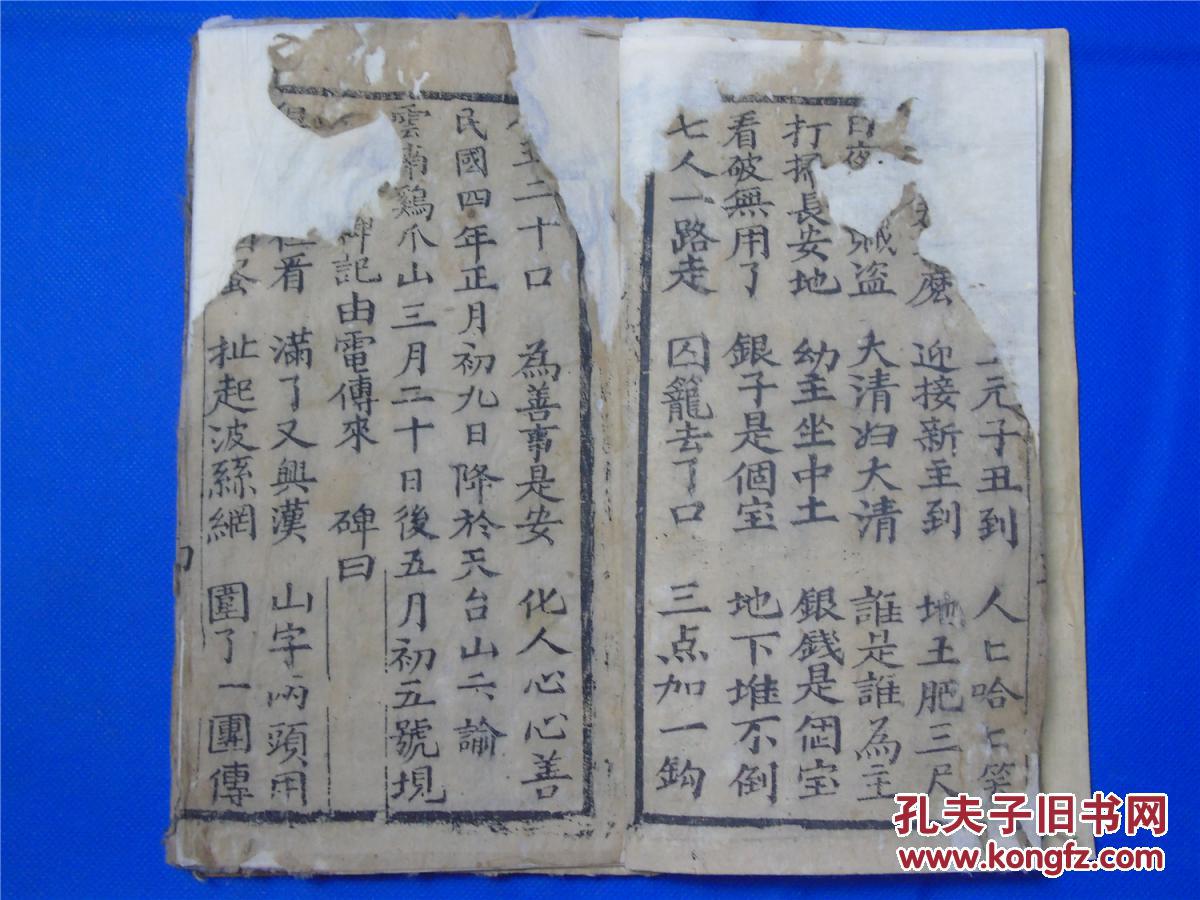 元子丑到 人匕哈匕笑
麽 迎接新主到 地土肥三尺
日夜 盗 大清妇大清 誰是誰為主
打掃長安地 幼主坐中土 銀錢是個宝
看破無用了 銀子是個宝 地下堆不倒
七人一路走 囚籠去了口 三点加一鈎
二十口 為善事是安 化人心心善
民國四年正月初九日降於天台山六諭
雲南鷄爪山三月二十日後五月初五號現
碑記由電傳來 碑曰
看 滿了又興漢 山字两頭用
扯起波絲網 圍了一團傳
孔夫子旧书网
www.kongfz.com